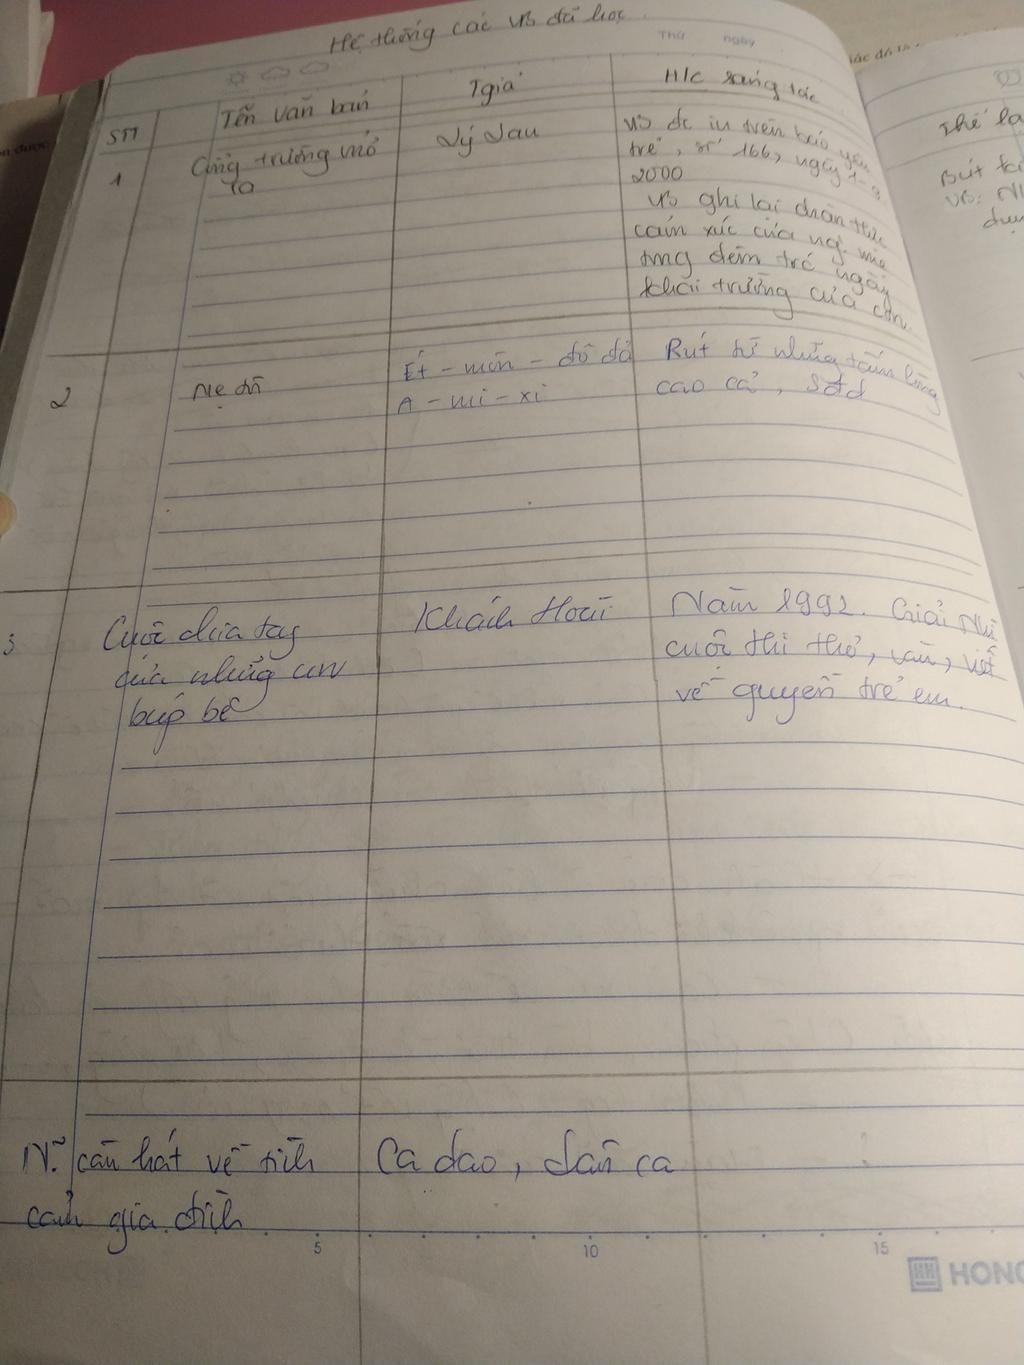 Hệ thống các vb đã học
Thứ ngày
STT
Tên văn bản
Tgiả
H/c sáng tác
1
Cổng trường mở
ra
Lý Lan
vb đc in trên báo yêu
trẻ, số 166, ngày 1-9
2000
vb ghi lại chân thực
cảm xúc của ng mẹ
tmg đêm trc ngày
khai trường của con
2
Mẹ tôi
Ét-môn-đô đơ
A-mi-xi
Rút từ những tấm lòng
cao cả, Sđd
3
Cuộc chia tay
của những con
búp bê
Khánh Hoài
Năm 1992. Giải Nhì
cuộc thi thơ, văn, viết
về quyền trẻ em.
N~ câu hát về tình
cảm gia đình
Ca dao, dân ca
5 10 15
HONG
Thể lo
Bút
vb: